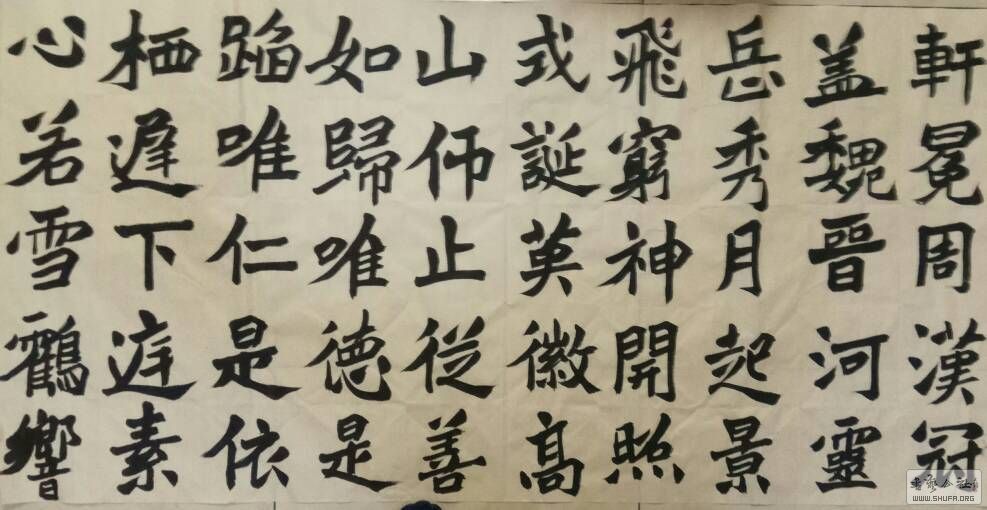 軒冕周漢冠
盖魏晉河靈
岳秀月起景
飛窮神開照
式誕英徽高
山仰止從善
如歸唯德是
蹈唯仁是依
栖遲下庭素
心若雪鶴響
WWW.SHUFA.ORG